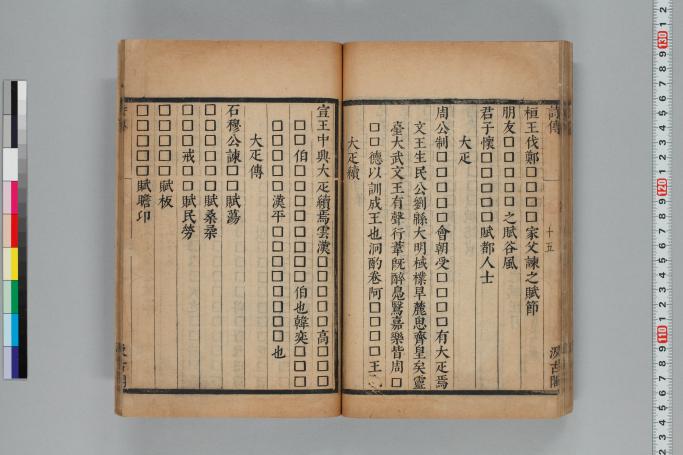 詩傳
桓王伐鄭□□□□家父諫之賦節
朋友□□□□□之賦谷風
君子懷□□□□□賦都人士
大疋
周公制□□□□□會朝受□□□□有大疋焉
文王生民公劉緜大明棫樸旱麓思齊皇矣靈
臺大武文王有聲行葦旣醉鳧鷖嘉樂皆周□
□□德以訓成王也泂酌卷阿□□□□王
大疋續
十五
汲古閣
宣王中興大疋續焉雲漢□□□□□高□□□
□□伯□□□□□□□□□伯也韓奕□□□
□□□□□漢平□□□□□□□□也
大疋傳
石穆公諫□□賦蕩
□□□□□□賦桑柔
□□□戒□□賦民勞
□□□□□賦板
□□□□□賦瞻卬